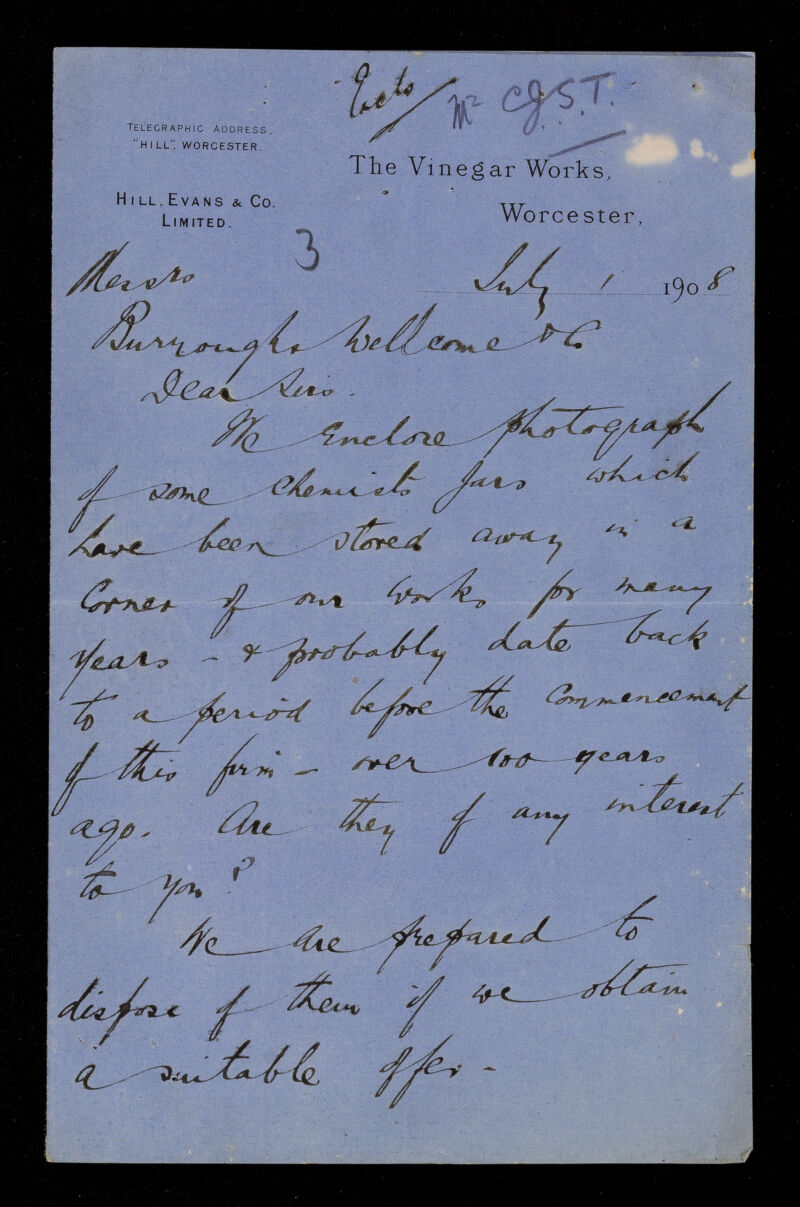 Mr C.J.S.T.
TELEGRAPHIC ADDRESS,
"HILL", WORCESTER.
The Vinegar Works,
HILL, EVANS & CO.
LIMITED.
Worcester,
3
Messrs
July 1 1908
Burroughs Wellcome & Co
Dear Sirs.
We enclose photograph
of some chemists jars which
have been stored away in a
corner of our works for many
years - & probably date back
to a period before the commencement
of this firm - over 100 years
ago. Are they of any interest
to you?
We are prepared to
dispose of them if we obtain
a suitable offer -